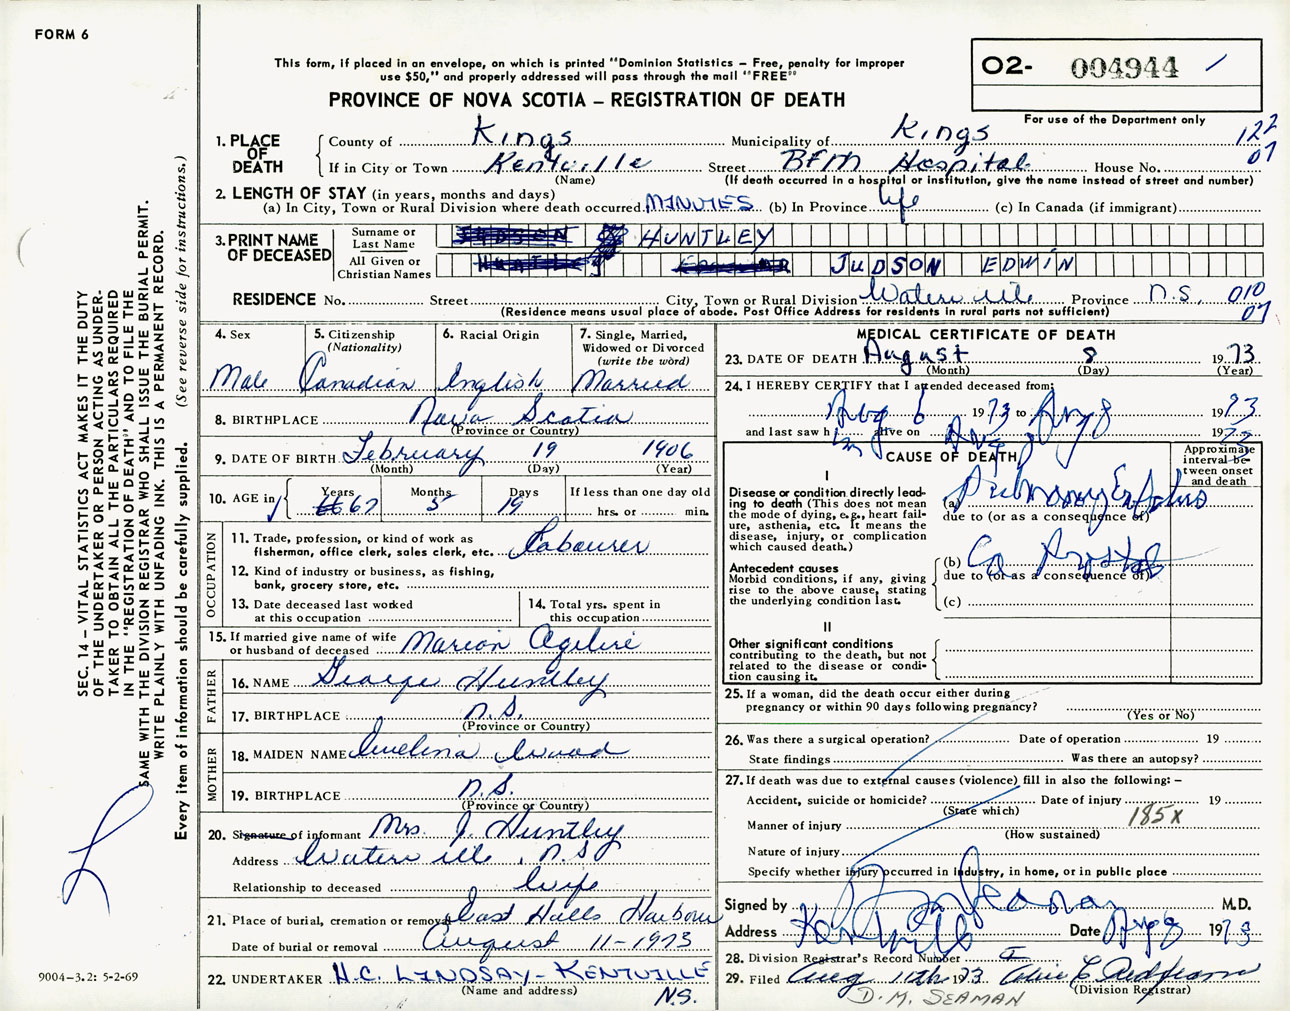 FORM 6
This form, if placed in an envelope, on which is printed "Dominion Statistics – Free, penalty for improper
use $50," and properly addressed will pass through the mail "FREE"
PROVINCE OF NOVA SCOTIA – REGISTRATION OF DEATH
O2- 004944 /
For use of the Department only
122
07
1. PLACE OF DEATH
County of Kings Municipality of Kings
If in City or Town Kentville Street BFM Hospital House No.
(Name) (If death occurred in a hospital or institution, give the name instead of street and number)
2. LENGTH OF STAY (in years, months and days)
(a) In City, Town or Rural Division where death occurred MINUTES (b) In Province life (c) In Canada (if immigrant)
3. PRINT NAME OF DECEASED
Surname or Last Name HUNTLEY
All Given or Christian Names JUDSON EDWIN
RESIDENCE No. Street City, Town or Rural Division Waterville Province N.S. 010
07
(Residence means usual place of abode. Post Office Address for residents in rural parts not sufficient)
4. Sex Male
5. Citizenship (Nationality) Canadian
6. Racial Origin English
7. Single, Married, Widowed or Divorced (write the word) Married
8. BIRTHPLACE Nova Scotia
(Province or Country)
9. DATE OF BIRTH February 19 1906
(Month) (Day) (Year)
10. AGE in Years 67 Months 5 Days 19 If less than one day old
hrs. or min.
OCCUPATION
11. Trade, profession, or kind of work as
fisherman, office clerk, sales clerk, etc. Labourer
12. Kind of industry or business, as fishing,
bank, grocery store, etc.
13. Date deceased last worked
at this occupation
14. Total yrs. spent in
this occupation
15. If married give name of wife
or husband of deceased Marion
FATHER
16. NAME George Huntley
17. BIRTHPLACE N.S.
(Province or Country)
MOTHER
18. MAIDEN NAME Wood
19. BIRTHPLACE N.S.
(Province or Country)
20. Signature of informant Mrs. J. Huntley
Address Waterville, N.S
Relationship to deceased Wife
21. Place of burial, cremation or removal East Halls Harbour
Date of burial or removal August 11-1973
22. UNDERTAKER H.C. LINDSAY- KENTVILLE
(Name and address) N.S.
MEDICAL CERTIFICATE OF DEATH
23. DATE OF DEATH August 8 1973
(Month) (Day) (Year)
24. I HEREBY CERTIFY that I attended deceased from:
Aug 6 1973 to Aug 8 1973
and last saw him alive on Aug 1973
CAUSE OF DEATH
Approximate
interval be-
tween onset
and death
I
Disease or condition directly lead-
ing to death (This does not mean
the mode of dying, e.g., heart fail-
ure, asthenia, etc. It means the
disease, injury, or complication
which caused death.)
(a) Pulmonary Embolus
due to (or as a consequence of)
Antecedent causes
Morbid conditions, if any, giving
rise to the above cause, stating
the underlying condition last.
(b) Ca Prostate
due to (or as a consequence of)
(c)
II
Other significant conditions
contributing to the death, but not
related to the disease or condi-
tion causing it.
25. If a woman, did the death occur either during
pregnancy or within 90 days following pregnancy?
(Yes or No)
26. Was there a surgical operation? Date of operation 19
State findings Was there an autopsy?
27. If death was due to external causes (violence) fill in also the following: –
Accident, suicide or homicide? Date of injury 19
(State which) 185X
Manner of injury
(How sustained)
Nature of injury
Specify whether injury occurred in industry, in home, or in public place
Signed by M.D.
Address Kentville Date Aug 8 1973
28. Division Registrar's Record Number
29. Filed Aug 11th 1973
(Division Registrar)
D. M. SEAMAN
SEC. 14 – VITAL STATISTICS ACT MAKES IT THE DUTY
OF THE UNDERTAKER OR PERSON ACTING AS UNDER-
TAKER TO OBTAIN ALL THE PARTICULARS REQUIRED
IN THE "REGISTRATION OF DEATH" AND TO FILE THE
SAME WITH THE DIVISION REGISTRAR WHO SHALL ISSUE THE BURIAL PERMIT.
WRITE PLAINLY WITH UNFADING INK. THIS IS A PERMANENT RECORD.
Every item of information should be carefully supplied. (See reverse side for instructions.)
9004–3.2: 5-2-69